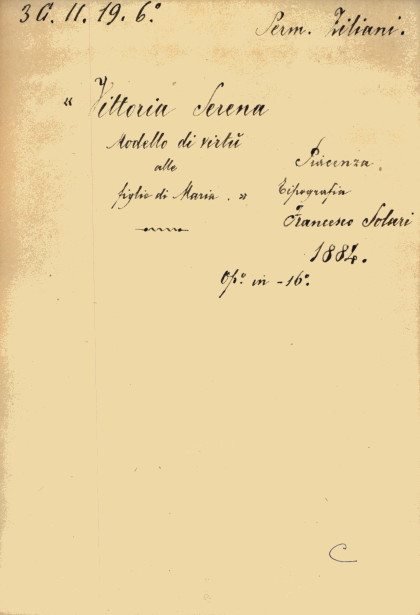 3 G. 11. 19. 6º
Perm. Ziliani.
" Vittoria Serena
Modello di virtù
alle
figlie di Maria. "
Piacenza
Tipografia
Francesco Solari
1884.
Op.º in-16º.
C